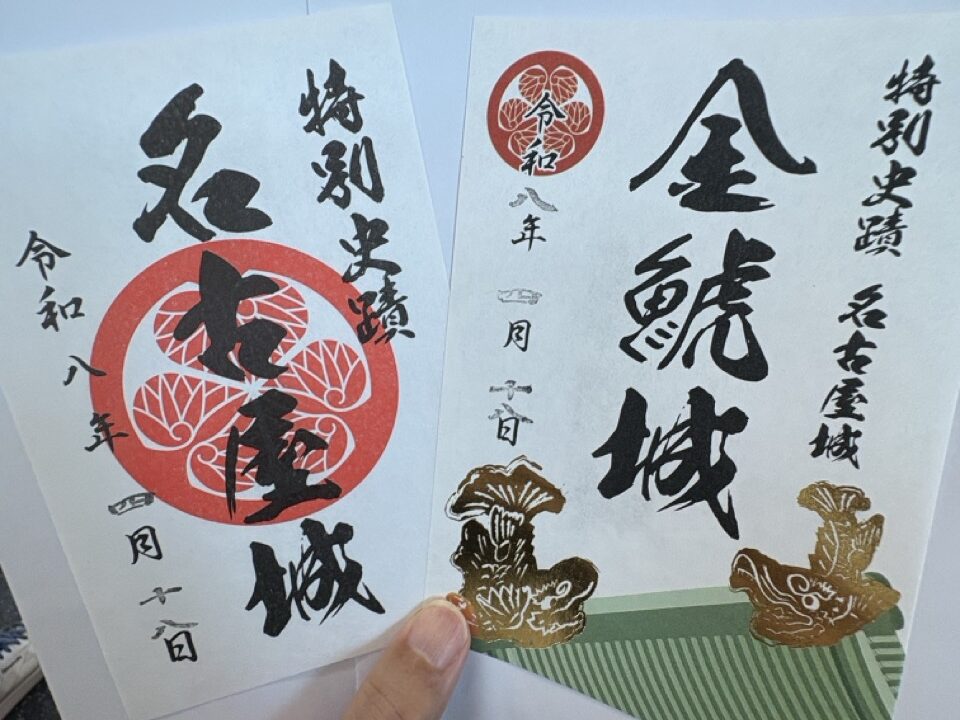 特別史蹟
名古屋城
令和八年四月十八日
特別史蹟 名古屋城
金鯱城
令和八年四月十八日